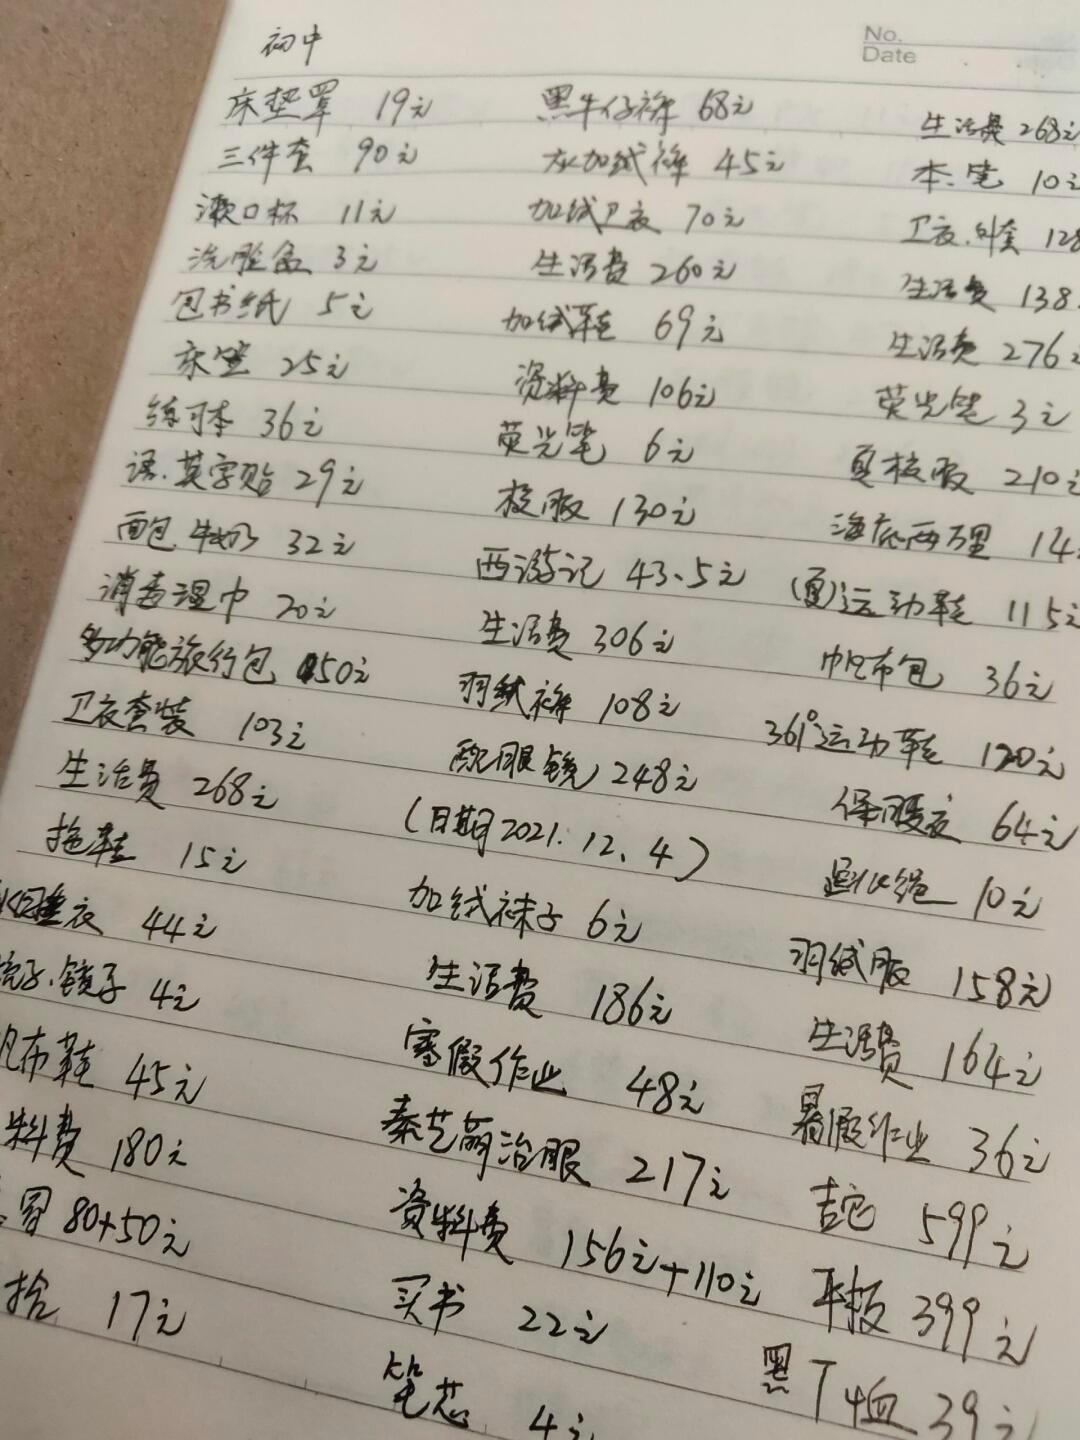 初中
No.
Date
床垫罩 19元
三件套 90元
漱口杯 11元
洗脸盆 3元
包书纸 5元
床垫 25元
练习本 36元
语.英字贴 29元
面包 牛奶 32元
消毒湿巾 20元
多功能旅行包 50元
卫衣套装 103元
生活费 268元
拖鞋 15元
睡衣 44元
子.镜子 4元
布鞋 45元
料费 180元
冒 80+50元
17元
黑牛仔裤 68元
灰加绒裤 45元
加绒卫衣 70元
生活费 260元
加绒鞋 69元
资料费 106元
荧光笔 6元
校服 130元
西游记 43.5元
生活费 306元
羽绒裤 108元
配眼镜 248元
(日期2021.12.4)
加绒袜子 6元
生活费 186元
寒假作业 48元
秦艺萌治眼 217元
资料费 156元+110元
买书 22元
笔芯 4元
生活费 268元
本.笔 10元
卫衣.外套 128
生活费 138
生活费 276元
荧光笔 3元
夏校服 210元
海底两万里 14
(夏)运动鞋 115元
帆布包 36元
361°运动鞋 120元
保暖衣 64元
10元
羽绒服 158元
生活费 164元
暑假作业 36元
吉它 599元
平板 399元
黑T恤 39元